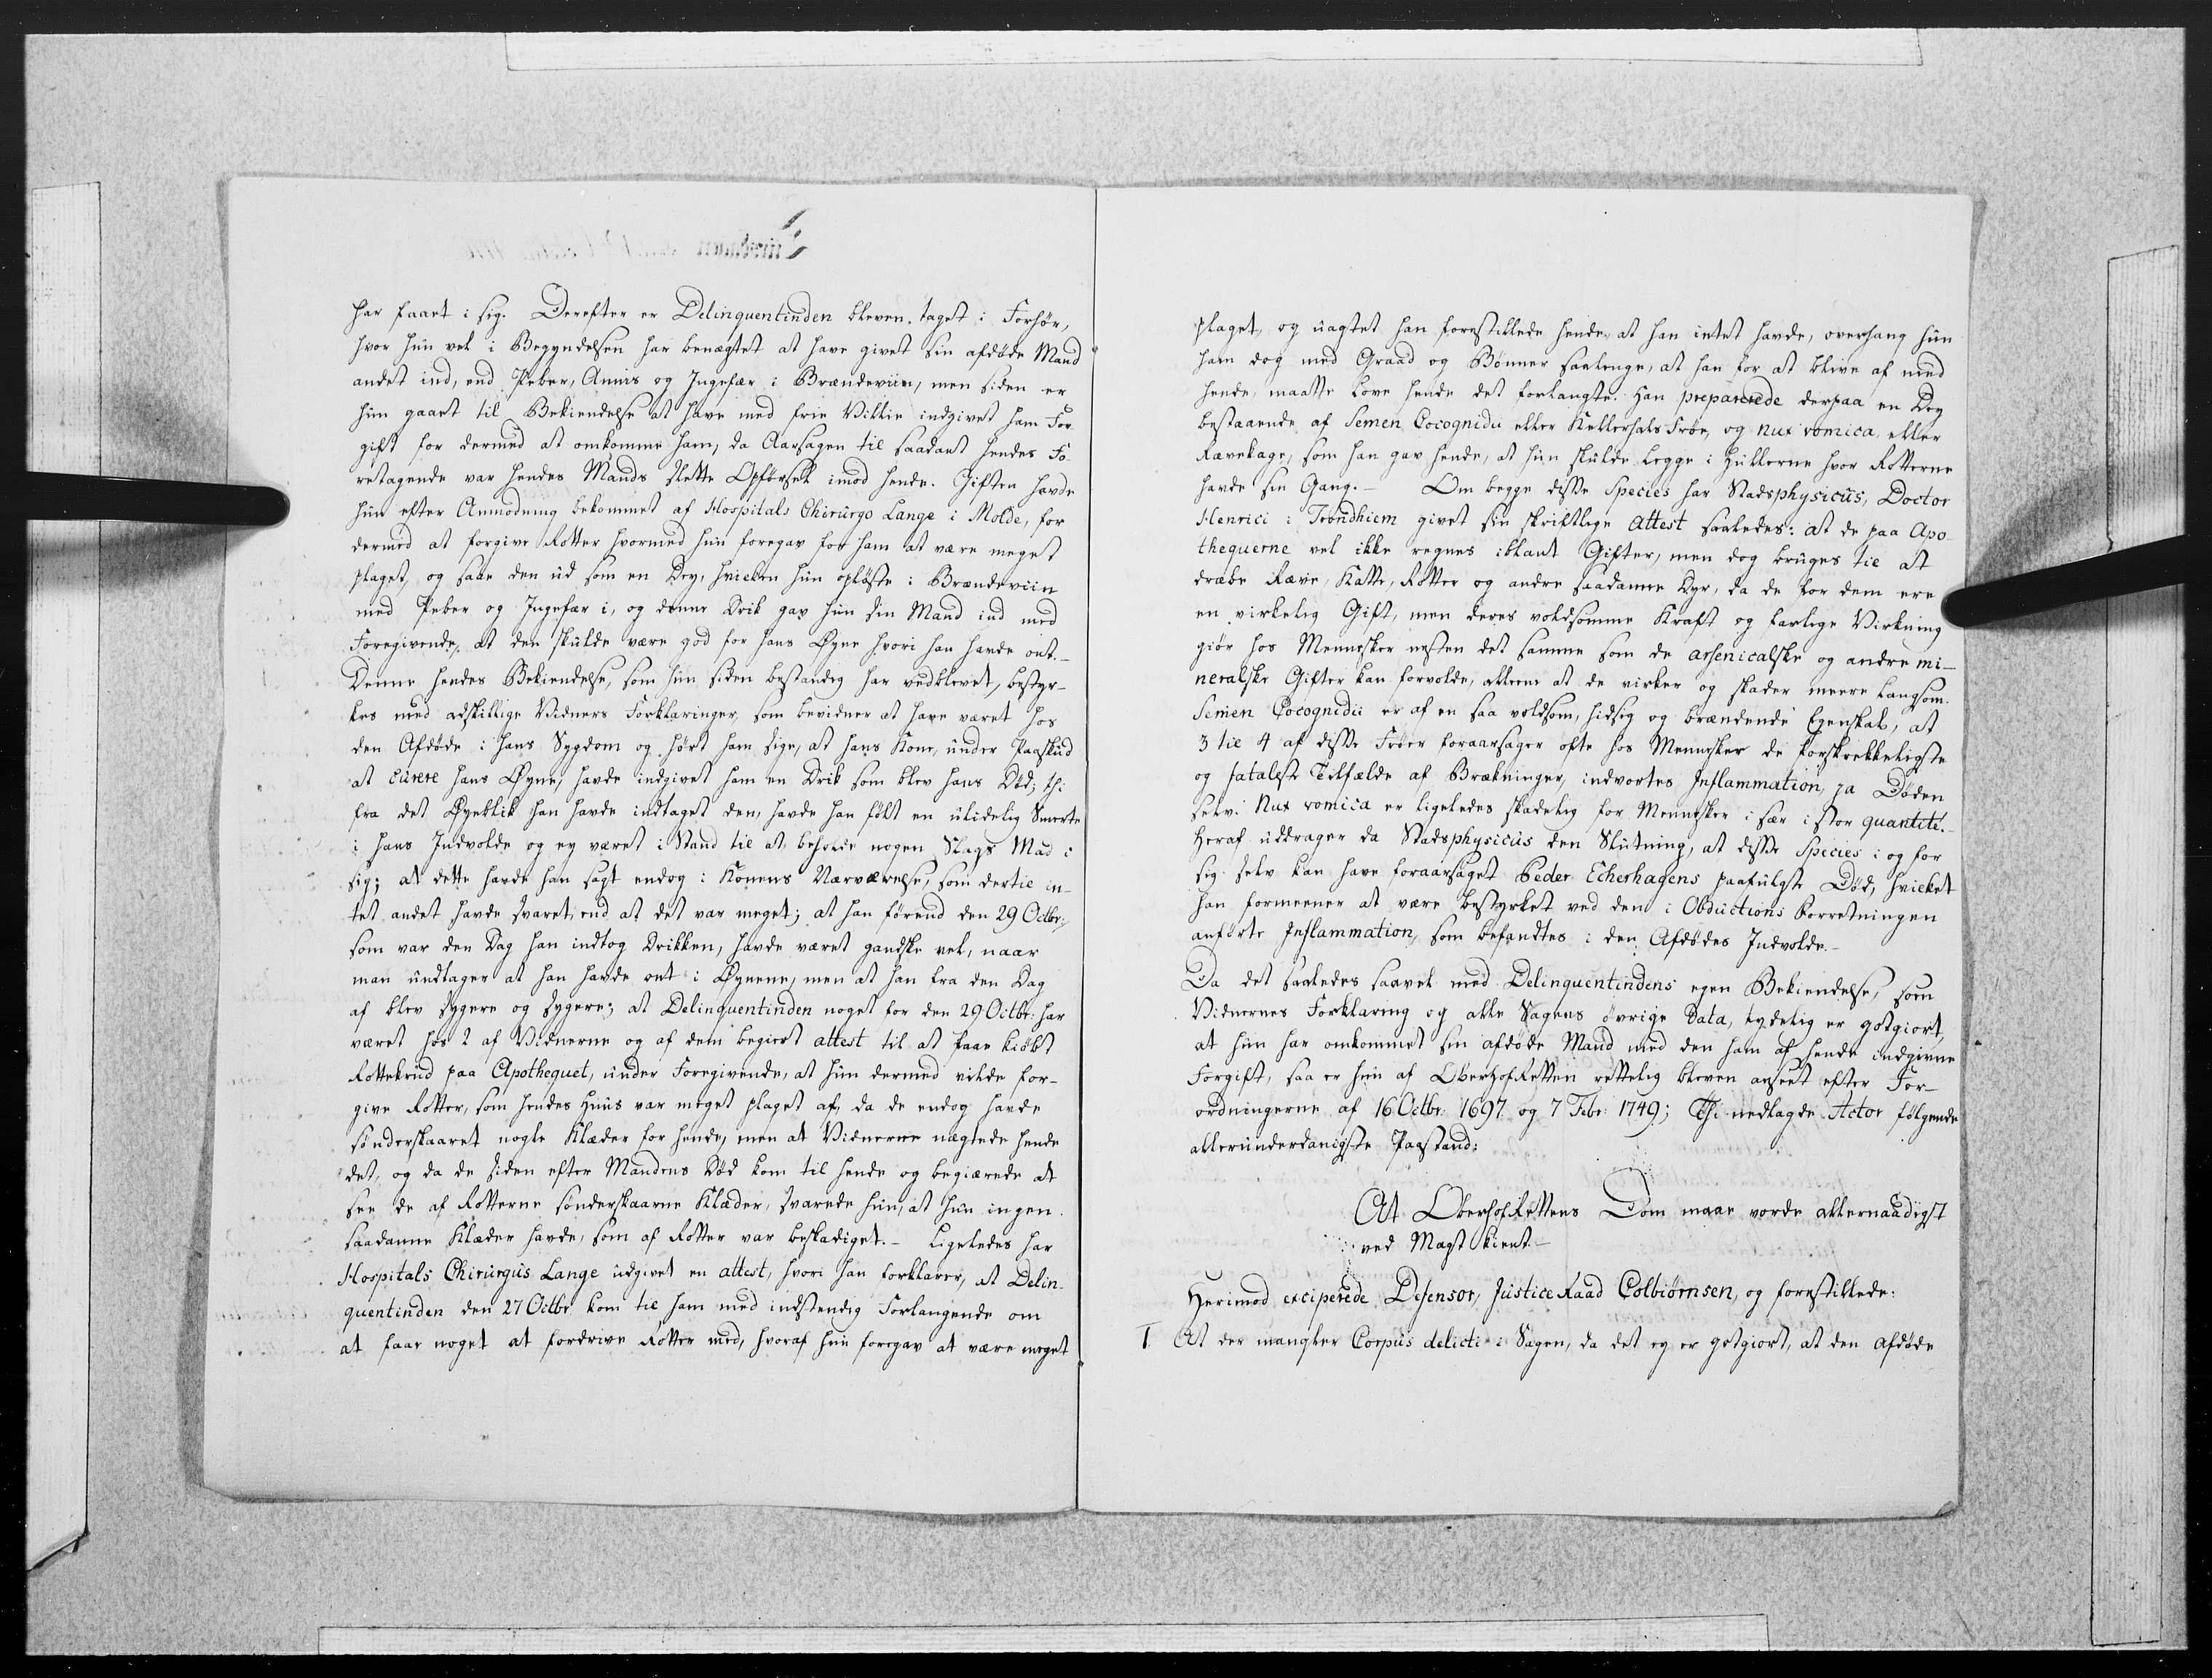 har faaet i sig. Derefter er Delinquentinden bleven taget i Forhør,
hvor hun vel i Begyndelsen har benægtet at have givet sin afdøde Mand
andet ind, end Peber, Annis og Ingefær i Brændeviin, men siden er
hun gaaet til Bekiendelse at have med frie Villie indgivet ham For-
gift for dermed at omkomme ham, da Aarsagen til saadant hendes Fo-
retagende var hendes Mands slette Opførsel imod hende. Giften havde
hun efter Anmodning bekommet af Hospitals Chirurgo Lange i Molde, for
dermed at forgive Rotter hvormed hun foregav for ham at være meget
plaget, og saae den ud som en Dey, hvilken hun opløste i Brændeviin
med Peber og Ingefær i, og denne Drik gav hun sin Mand ind med
Foregivende, at den skulde være god for hans Øyne hvori han havde ont.-
Denne hendes Bekiendelse, som hun siden bestandig har vedblevet, bestyr-
kes med adskillige Vidners Forklaringer, som bevidner at have været hos
den Afdøde i hans Sygdom og hørt ham sige, at hans Kone, under Paaskud
at curere hans Øyne, havde indgivet ham en Drik som blev hans Død; thi
fra det Øyeblik han havde indtaget den, havde han følt en ulidelig Smerte
i hans Indvolde og ey været i Stand til at beholde nogen Slags Mad i
sig; at dette havde han sagt endog i Konens Nærværelse, som dertil in-
tet andet havde svaret end at det var meget; at han førend den 29 Octbr:,
som var den Dag han indtog Drikken, havde været gandske vel, naar
man undtager at han havde ont i Øynene, men at han fra den Dag
af blev sygere og sygere; at Delinquentinden noget for den 29 Octbr: har
været hos 2 af Vidnerne og af dem begiert attest til at faae kiøbt
Rottekrud paa Apothequet, under Foregivende, at hun dermed vilde for-
give Rotter, som hendes Huus var meget plaget af, da de endog havde
sønderskaaret nogle Klæder for hende, men at Vidnerne nægtede hende
det, og da de siden efter Mandens Død kom til hende og begiærede at
see de af Rotterne sønderskaarne Klæder, svarede hun, at hun ingen
saadanne Klæder havde, som af Rotter var beskadiget.- Ligeledes har
Hospitals Chirurgus Lange udgivet en attest, hvori han forklarer, at Delin-
quentinden den 27 Octbr: kom til ham med indstendig Forlangende om
at faae noget at fordrive Rotter med, hvoraf hun foregav at være meget
plaget, og uagtet han forestillede hende, at han intet havde, overhang hun
ham dog med Graad og Bønner saalenge, at han for at blive af med
hende, maatte love hende det forlangte. Han preparerede derpaa en Dey
bestaaende af Semen Cocognidii eller Kellerhals Frøe, og Nux vomica eller
Rævekage, som han gav hende, at hun skulde legge i Hullerne hvor Rotterne
havde sin Gang.- Om begge disse Species har Stadsphysicus, Doctor
Henrici i Trondhiem givet sin skriftlige Attest saaledes: at de paa Apo-
thequerne vel ikke regnes iblant Gifter, men dog bruges til at
dræbe Ræve, Katte, Rotter og andre saadanne Dyr, da de for dem ere
en virkelig Gift, men deres voldsomme Kraft og farlige Virkning
giør hos Mennesker nesten det samme som de arsenicalske og andre mi-
neralske Gifter kan forvolde, allene at de virker og skader meere langsom.
Semen Cocognidii er af en saa voldsom, hidsig og brændende Egenskab, at
3 til 4 af disse Frøer foraarsager ofte hos Mennesker de forskrekkeligste
og fataleste Tilfælde af Brækninger, indvortes Inflammation, ja Døden
selv. Nux vomica er ligeledes skadelig for Mennesker i sær i stor quantité.-
Heraf uddrager da Stadsphysicus den Slutning, at disse Species i og for
sig selv kan have foraarsaget Peder Echerhagens paafulgte Død, hvilket
han formeener at være bestyrket ved den i Obductions Forretningen
anførte Inflammation, som befandtes i den Afdødes Indvolde.-
Da det saaledes saavel med Delinquentindens egen Bekiendelse, som
Vidnernes Forklaring og alle Sagens øvrige Data, tydelig er gotgiort,
at hun har omkommet sin afdøde Mand med den ham af hende indgivne
Forgift, saa er hun af OberhofRetten rettelig bleven anseet efter For-
ordningerne af 16 Octbr: 1697 og 7 Febr: 1749; Thi nedlagde Actor følgende
allerunderdanigste Paastand:
At OberhofRettens Dom maae vorde allernaadigst
ved Magt kient.-
Herimod exciperede Defensor, Justice Raad Colbiørnsen, og forestillede:
1. At der mangler Corpus delicti i Sagen, da det ey er gotgiort, at den Afdøde